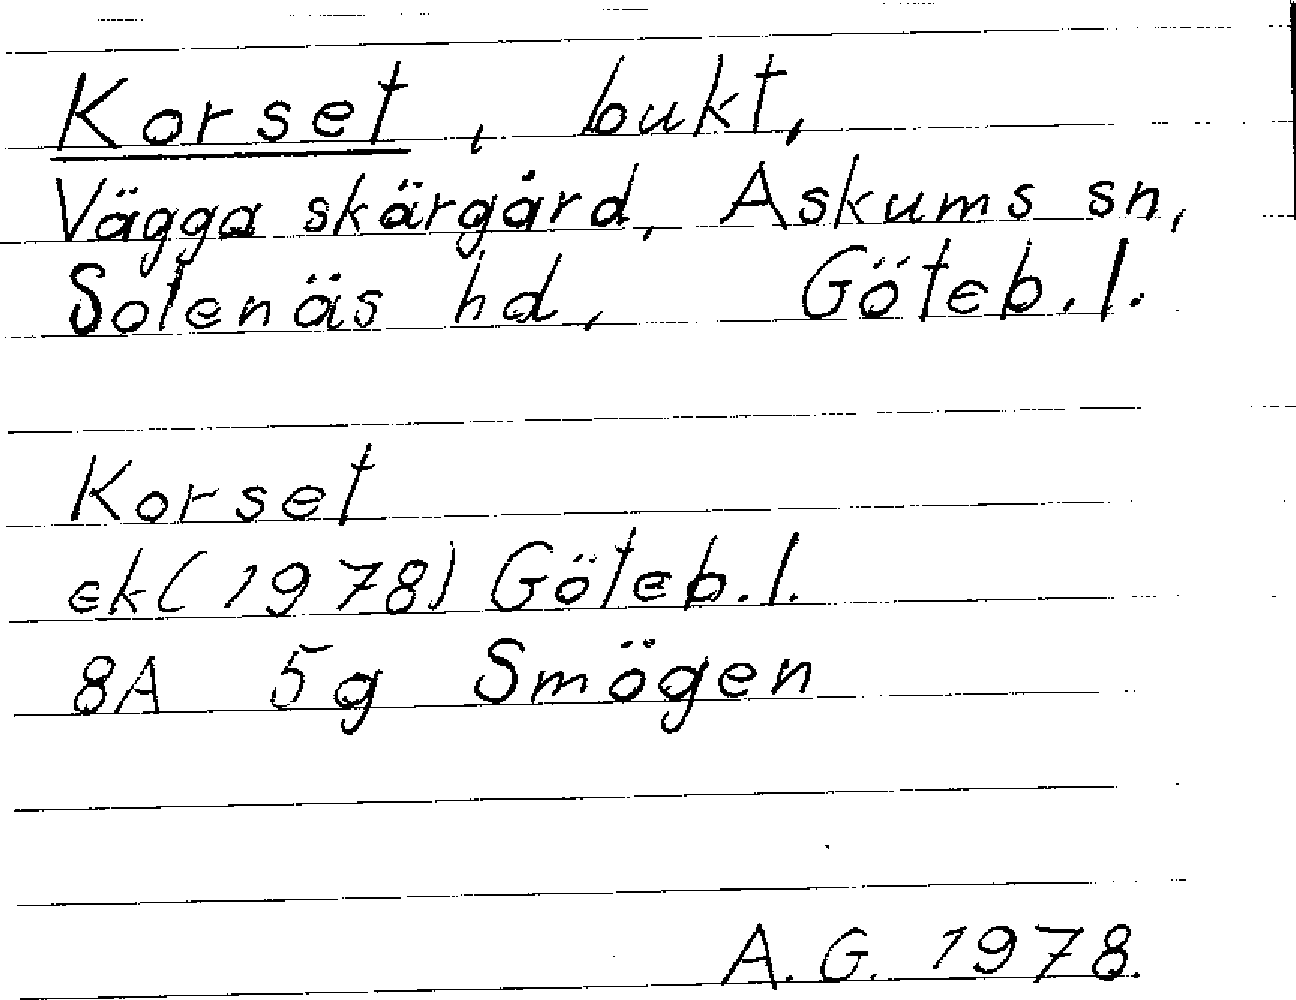 Korset, bukt,
Vägga skärgård, Askums sn,
Sotenäs hd, Göteb.l.
Korset
ek(1978) Göteb.l.
8A 5g Smögen
A.G. 1978.